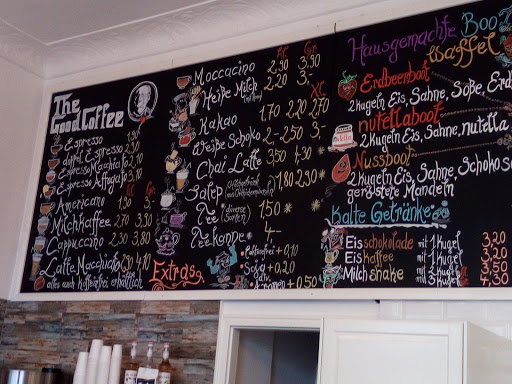 The
Good Coffee
Espresso 1,90
doppel Espresso 2,30
Espresso Macchiato 2,10
Espresso Affogato 3,10
Kl. Gr.
Americano 1,90 3,-
Milchkaffee 2,70 3,90
Cappuccino 2,30 3,80
Latte Macchiato
alles auch koffeinfrei erhältlich
Kl. Gr.
Moccacino 2,90 3,90
Heiße Milch 2,20 3,-
XL
Kakao 1,70 2,20 2,70
Weiße Schoko 2,- 2,50 3,-
Chai Latte 3,50 4,30
Salep 1,80 2,90
Tee diverse Sorten 1,50
Teekanne 4,-
Extras
Koffeinfrei +0,10
Soja +0,20
+0,10
Hausgemachte Boo
Waffel
Erdbeerboot
2 Kugeln Eis, Sahne, Soße, Erd
nutellaboot
2 Kugeln Eis, Sahne, nutella
Nussboot
2 Kugeln Eis, Sahne, Schokoso
geröstete Mandeln
Kalte Getränke
Eisschokolade mit 1 Kugel 3,20
Eiskaffee mit 1 Kugel 3,20
Milchshake mit 2 Kugel 3,50
mit 3 Kugel 4,30